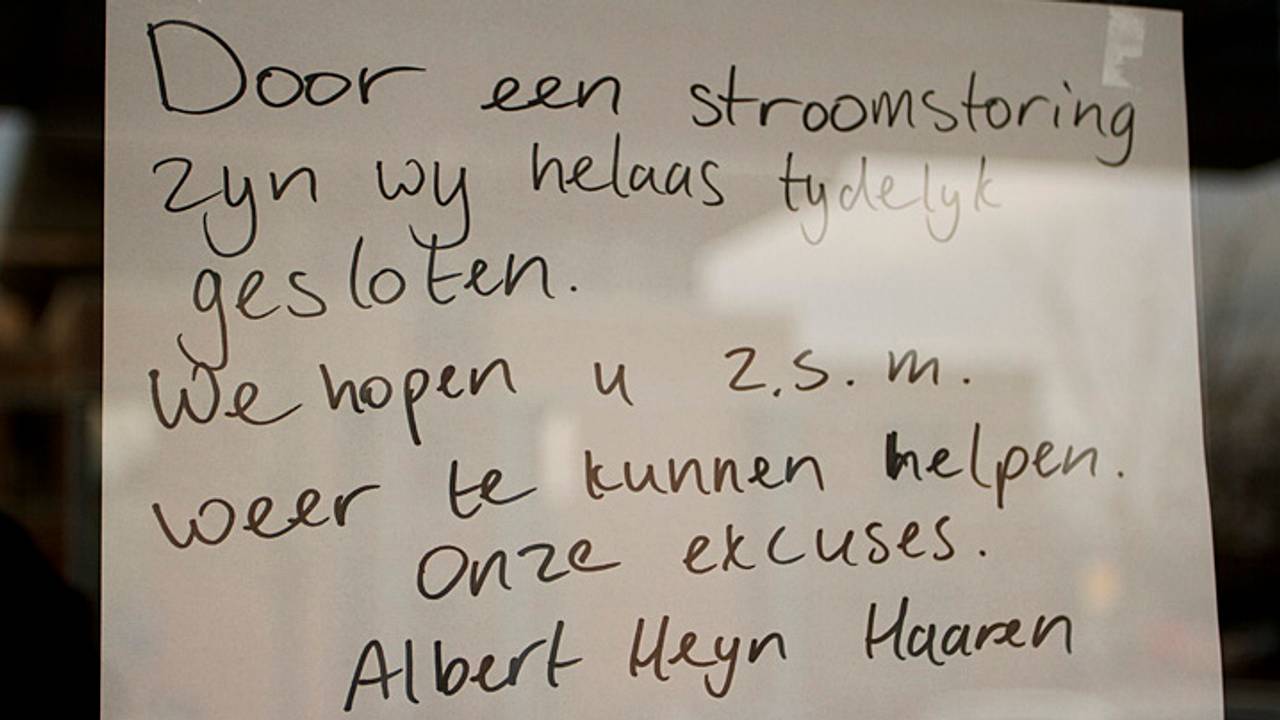 Door een stroomstoring
zyn wy helaas tydelyk
gesloten.
We hopen u z.s.m.
weer te kunnen helpen.
Onze excuses.
Albert Heyn Haaren